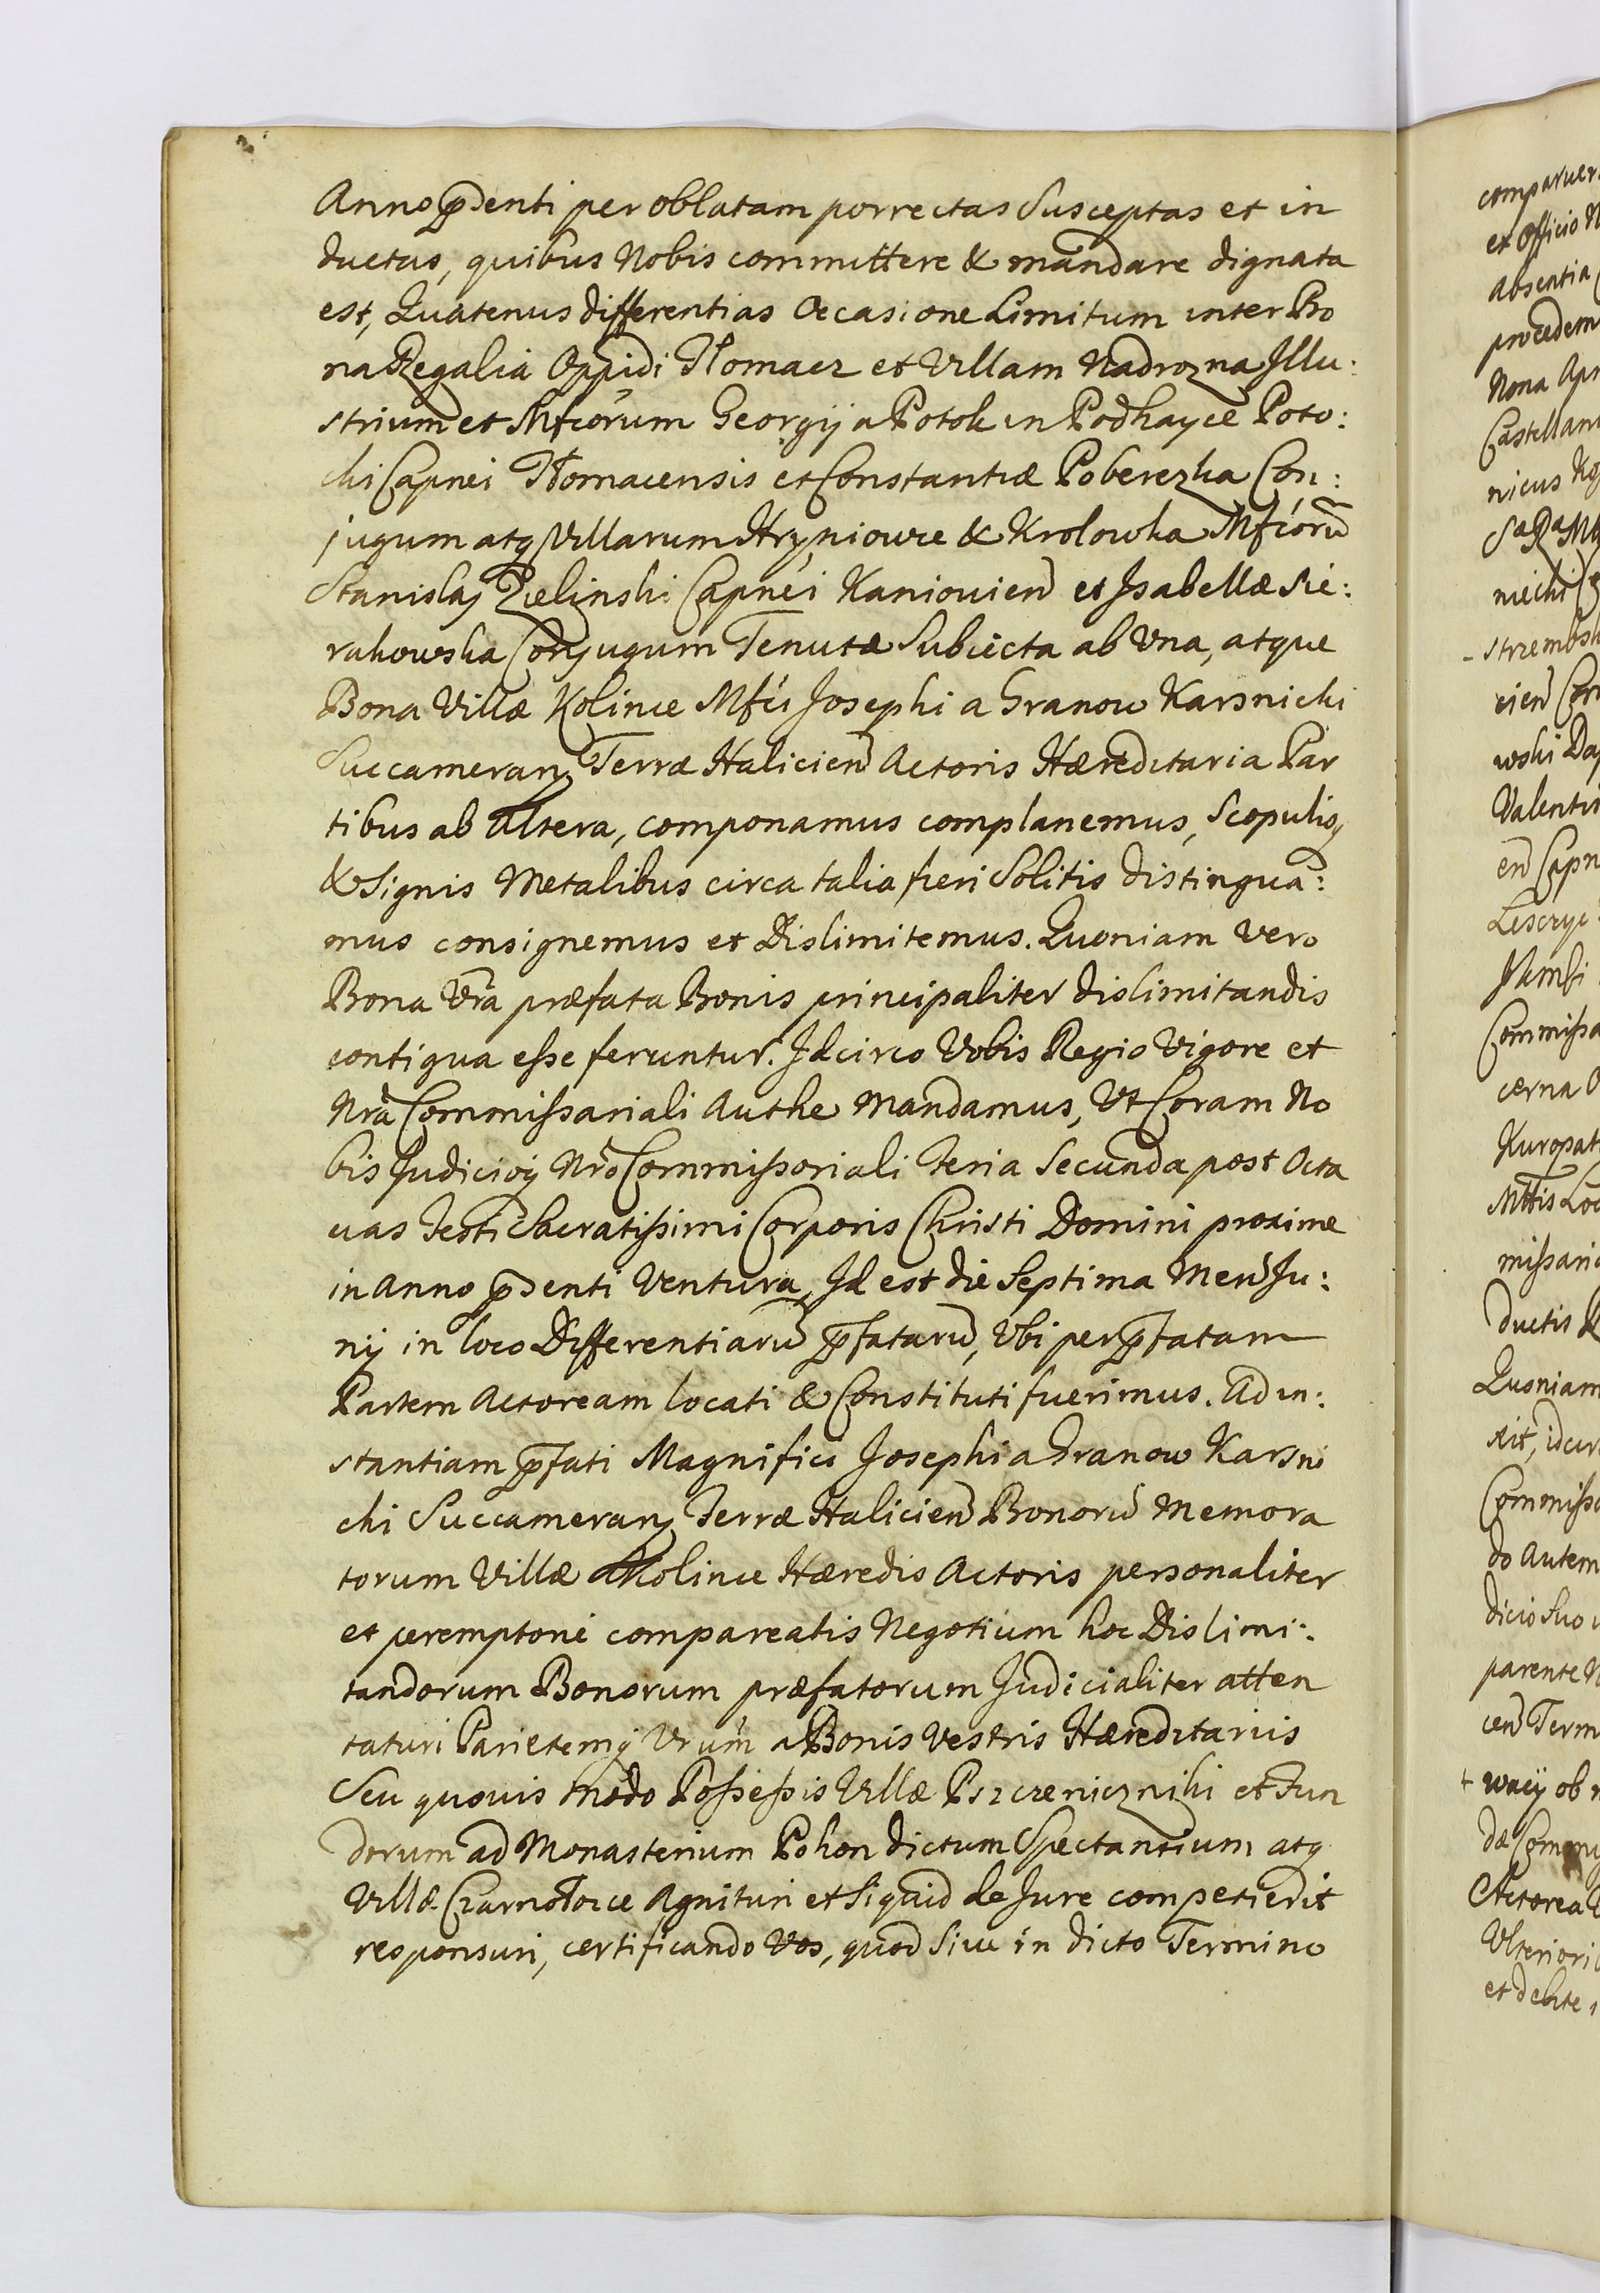 Anno p̄senti per oblatam porrectas Susceptas et in
ductas, quibus Nobis committere & mandare dignata
est, Quatenus differentias Occasione Limitum inter Bo
na Regalia Oppidi Tłomacz et Villam Nadrozna Illu:
strium et Mfcorum Georgij a Potok in Podhayce Poto:
cki Capnei Tłomacensis et Constantiæ Poberezka Con:
jugum atq Villarum Hryniowce & Krolowka Mfcorū
Stanislaj Zielinski Capnei Kaniovien et Isabellæ Sie:
rakowska Conjugum Tenutæ Subiecta ab Una, atque
Bona Villæ Kolince Mfci Josephi a Granow Karsnicki
Succamerarij Terræ Halicien Actoris Hæreditaria Par
tibus ab Altera, componamus complanemus, Scopulisq
& Signis Metalibus circa talia fieri Solitis distingua:
mus consignemus et Dislimitemus. Quoniam vero
Bona Vra præfata Bonis principaliter dislimitandis
contigua esse feruntur. Idcirco Vobis Regio Vigore et
Nrā Commissariali Authe Mandamus, Ut Coram No
bis Judicioq Nrō Commissoriali Feria Secunda post Octa
vas Festi Sacratissimi Corporis Christi Domini proxime
in Anno p̄senti Ventura, Id est die Septima Mens Ju:
nij in loco Differentiarū p̄fatarū, Ubi per p̄fatam
Partem Actoream locati & Constituti fuerimus. Ad in:
stantiam p̄fati Magnifici Josephi a Granow Karsni
cki Succamerarij Terræ Halicien Bonorū Memora
torum Villæ Kolince Hæredis Actoris personaliter
et peremptorie compareatis Negotium hoc Dislimi:
tandorum Bonorum præfatorum Judicialiter atten
taturi Parietemq Vrum a Bonis Vestris Hæreditariis
Seu quovis modo Possessis Villæ Pszenicznihi et Fun
dorum ad Monasterium Pohon dictum Spectantium atq
Villæ Czarnołozce Agnituri et Siquid de Jure competierit
responsuri, certificando Vos, quod Sive in dicto Termino
comparuer
et Officio N
Absentia
procedem
Nona Apr
Castellan
nicus
niecki
strzembsk
cien Com
wski Dap
Valenti
en Capn
Lesczyc
Commissa
cerna
Kuropat
missari
ductis
Quoniam
xit, idcir
Commisso
do Autem
dicio Suo
parente N
cen Term
wacij ob
Actorea
Ulteriori
et debite